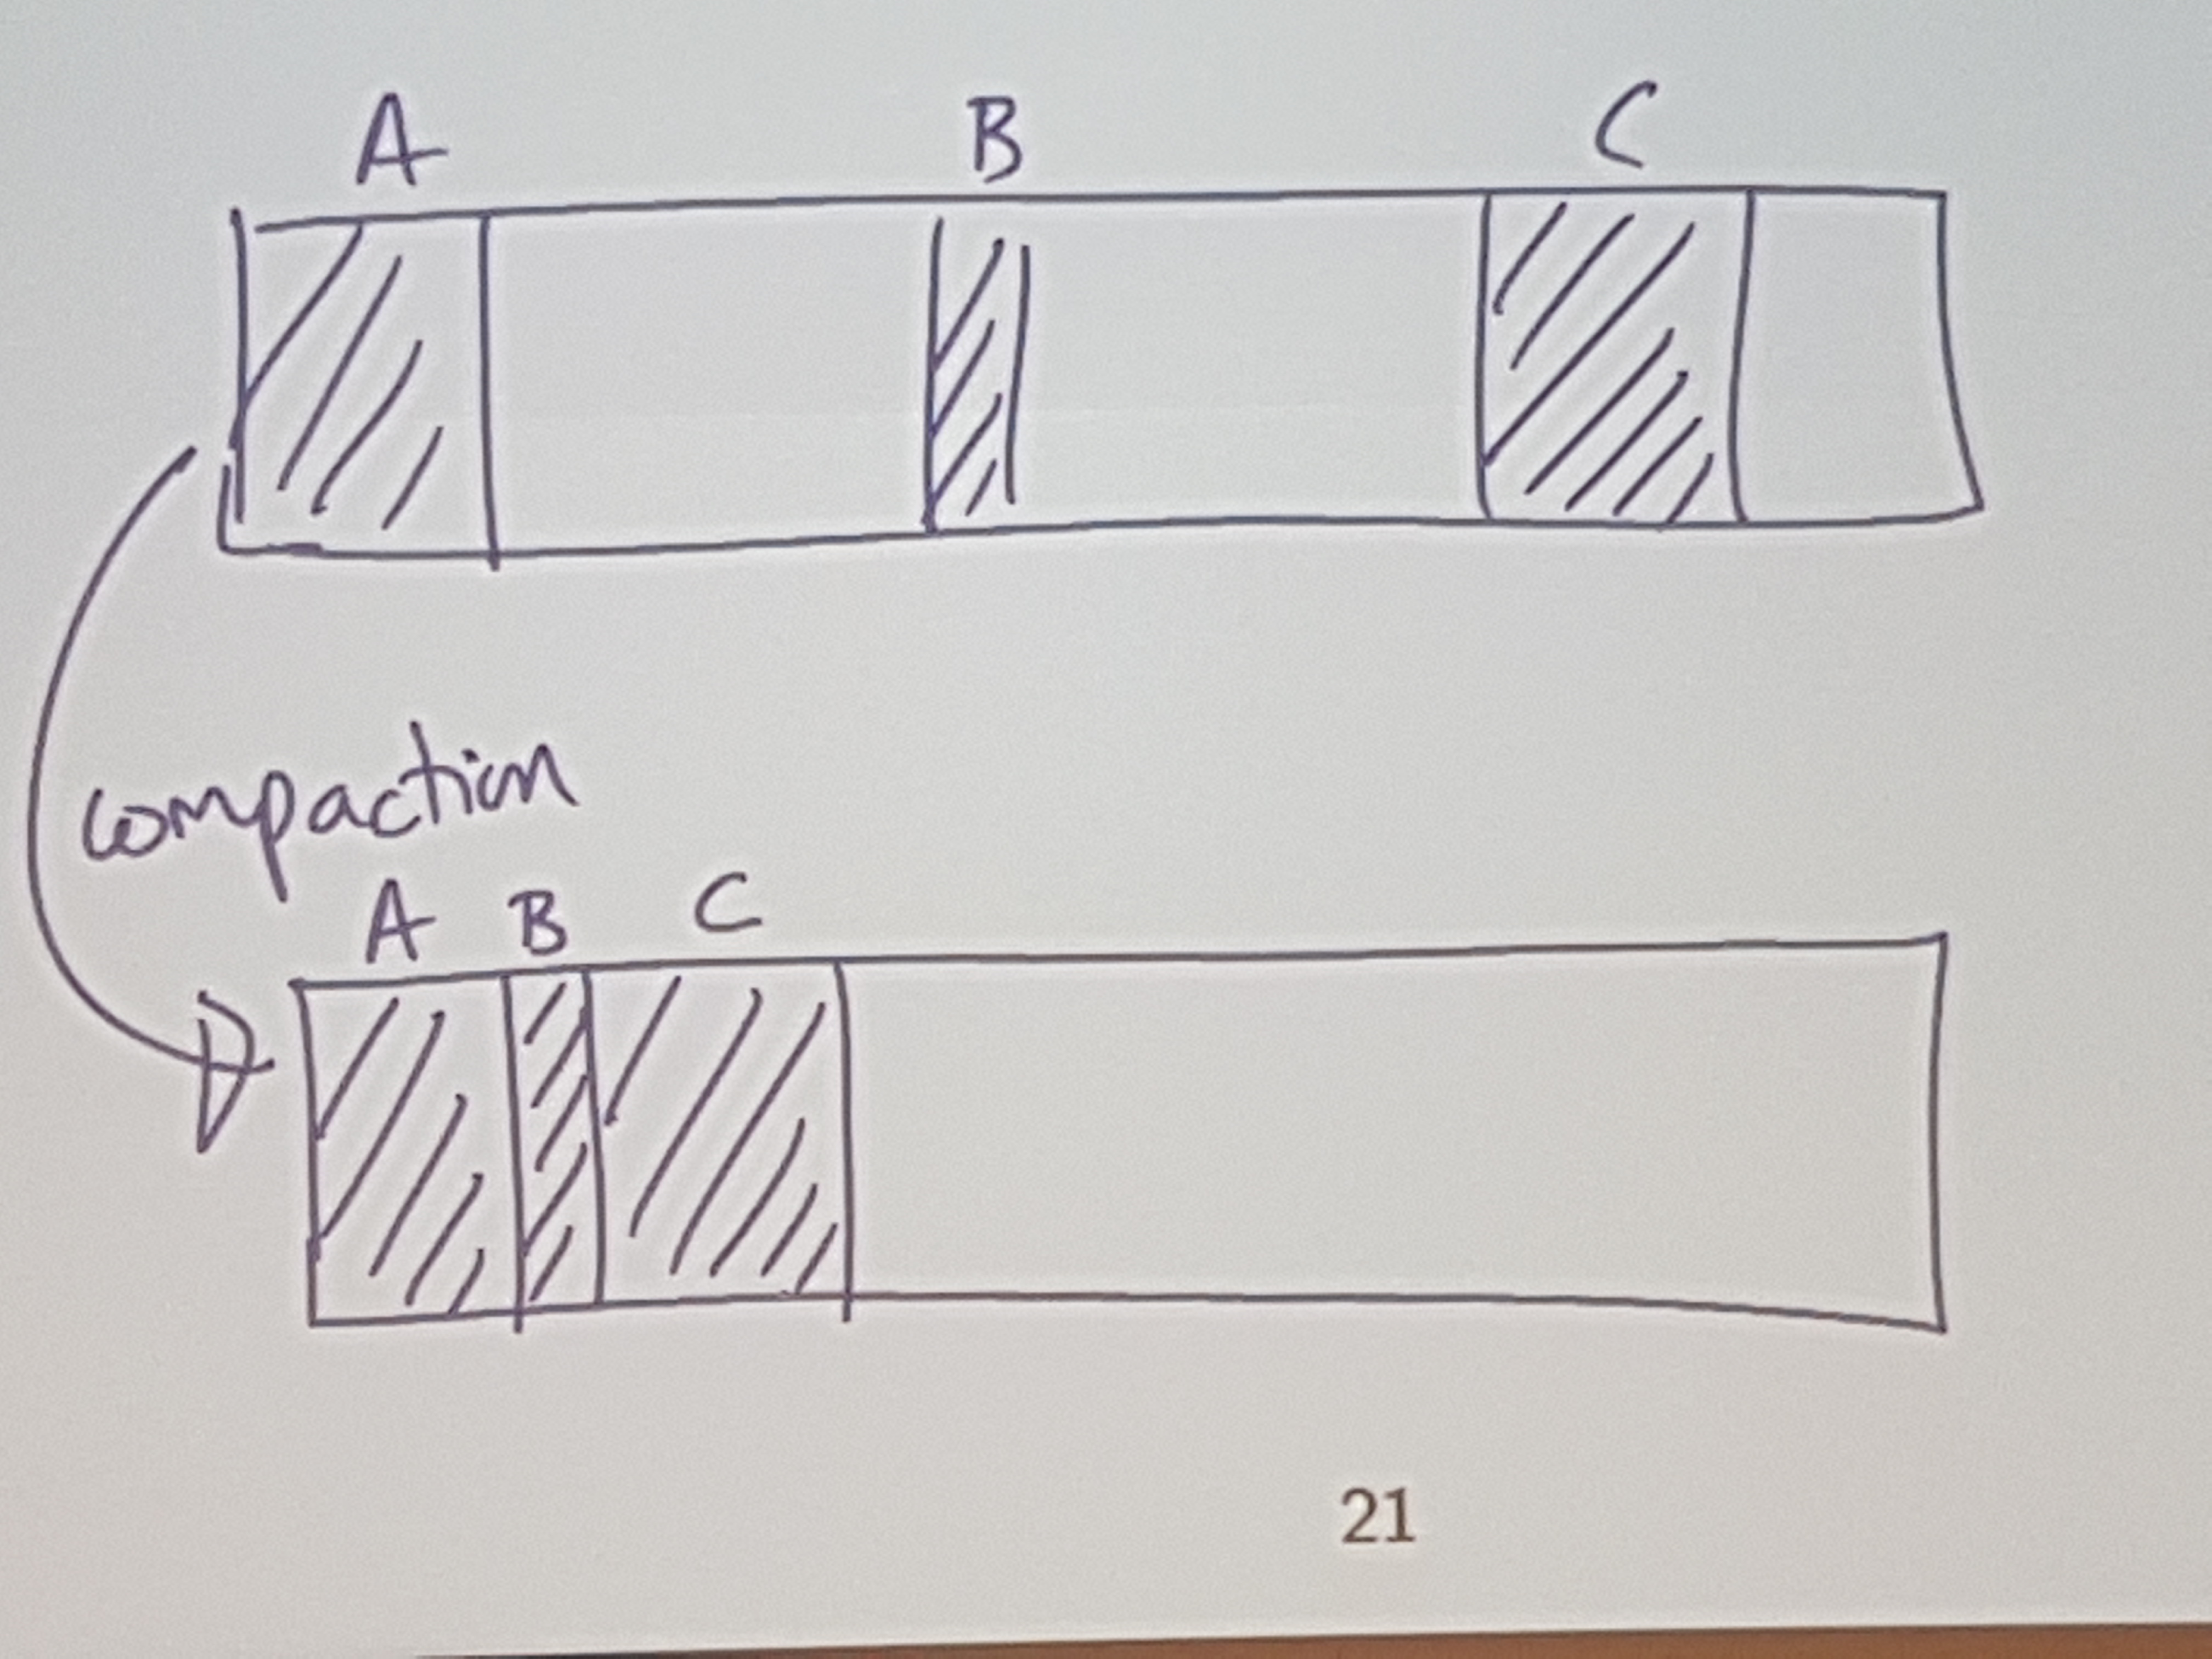 A B C
compaction
A B C
21